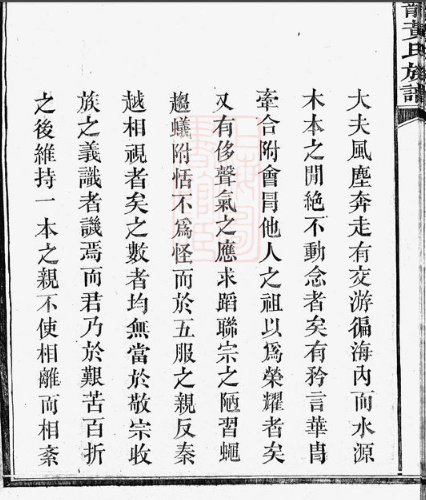 龍黃氏族譜
大夫風塵奔走有交游徧海內而水源
木本之閒絕不動念者矣有矜言華胄
牽合附會冐他人之祖以爲榮耀者矣
又有侈聲氣之應求蹈聯宗之陋習蠅
趨蟻附恬不爲怪而於五服之親反秦
越相視者矣之數者均無當於敬宗收
族之義識者譏焉而君乃於艱苦百折
之後維持一本之親不使相離而相紊